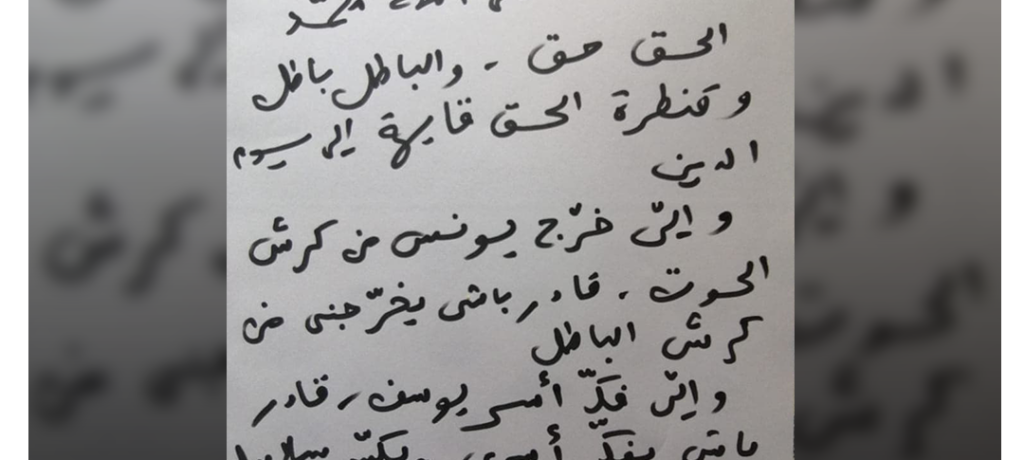 الحق حق - والباطل باطل
وقنطرة الحق قايمة إلى يوم
الدين
و إلّي خرّج يونس من كرش
الحوت، قادر باش يخرّجني من
كرش الباطل
و إلّي فكّ أسر يوسف، قادر
باش يفكّ أسري